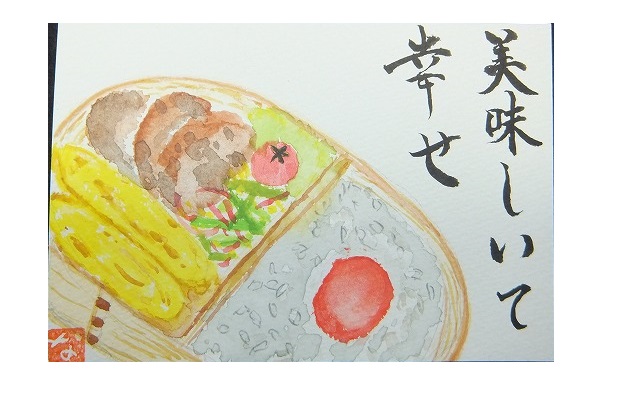 美味しいて
幸せ
な